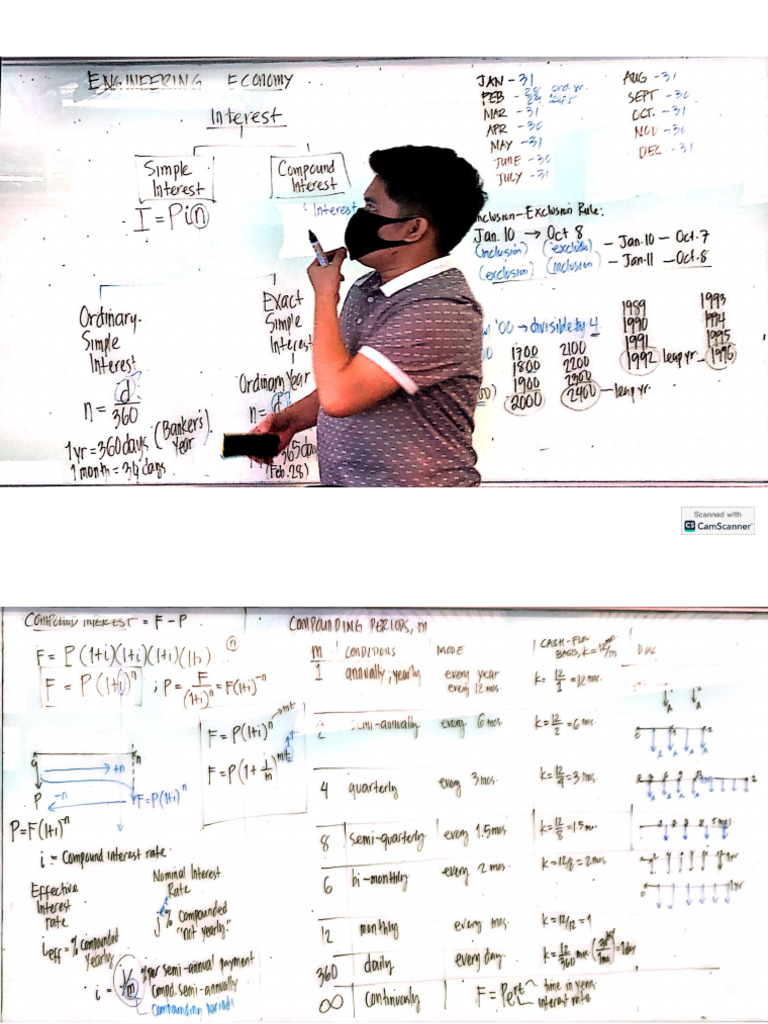 ENGINEERING ECONOMY
Interest
Simple Interest
I = Pin
Compound Interest
Interest
Ordinary Simple Interest
n = d/360
1yr = 360days (Bankers' Year)
1 month = 30 days
Exact Simple Interest
Ordinary Year
n = d
365 day
(Feb. 28)
JAN - 31
FEB - 28 ord. yr.
29
MAR - 31
APR - 30
MAY - 31
JUNE - 30
JULY - 31
AUG - 31
SEPT - 30
OCT. - 31
NOV - 30
DEC - 31
Inclusion-Exclusion Rule:
Jan. 10 → Oct 8
(inclusion) (exclude) - Jan. 10 - Oct. 7
(exclusion) (inclusion) - Jan. 11 - Oct. 8
'00 → divisible by 4
1700 2100
1800 2200
1900 2300
2000 2400 - leap yr.
1989 1993
1990 1994
1991 1995
1992 leap yr. 1996
Scanned with
CS CamScanner
COMPOUND INTEREST = F - P
F = P(1+i)(1+i)(1+i)(1+i)
F = P(1+i)^n ; P = F/(1+i)^n = F(1+i)^-n
F = P(1+i)^n mt
F = P(1 + j/m)^mt
0 +n n
P -n F = P(1+i)^n
P = F(1+i)^-n
i = Compound interest rate.
Effective Interest rate
Nominal Interest Rate
j % Compounded "not yearly."
i eff = % compounded yearly
i = j/m % per semi-annual payment
Compd. semi-annually
compounding periods
COMPOUNDING PERIODS, m
m CONDITIONS MODE CASH-FLOW BASIS, k = 12/m
1 annually, yearly every year every 12 mos. k = 12/1 = 12 mos.
2 semi-annually every 6 mos. k = 12/2 = 6 mos.
4 quarterly every 3 mos. k = 12/4 = 3 mos.
8 semi-quarterly every 1.5 mos k = 12/8 = 1.5 mo.
6 bi-monthly every 2 mos. k = 12/6 = 2 mos
12 monthly every mos. k = 12/12 = 1
360 daily every day. k = 12/360 = 1 day
∞ continuously F = Pe^rt time in years interest rate